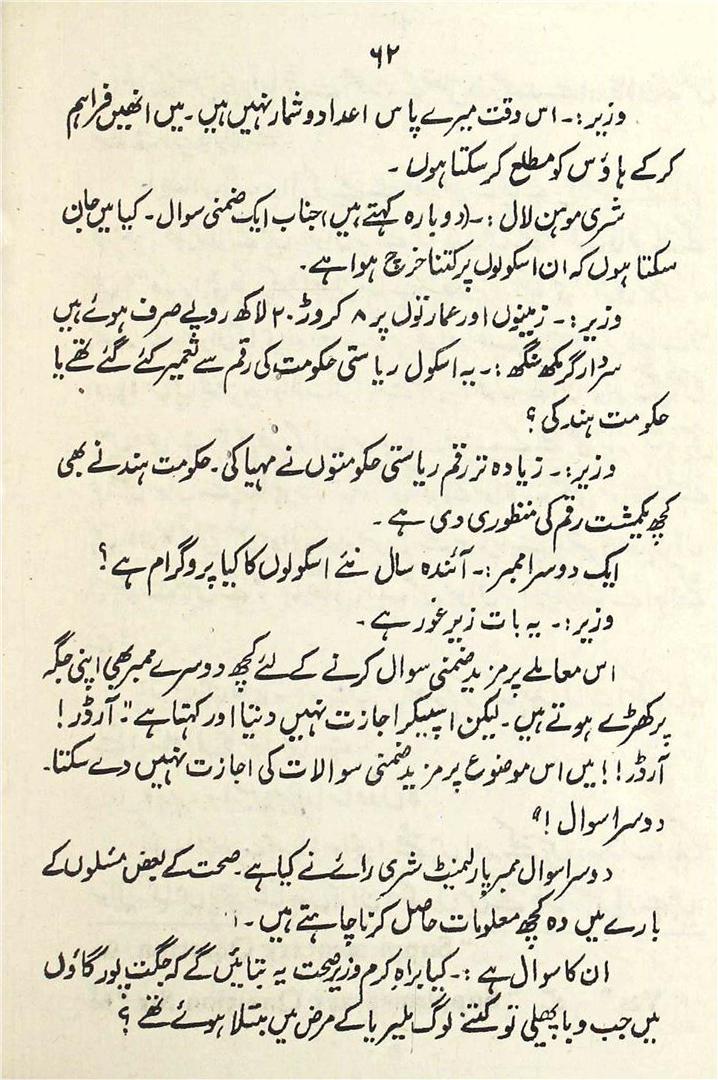 ۶۲
وزیر :۔ اس وقت میرے پاس اعداد و شمار نہیں ہیں ۔ میں انھیں فراہم
کر کے ہاؤس کو مطلع کر سکتا ہوں ۔
شری موہن لال :۔ (دوبارہ کہتے ہیں) جناب ایک ضمنی سوال ۔ کیا میں جان
سکتا ہوں کہ ان اسکولوں پر کتنا خرچ ہوا ہے ۔
وزیر :۔ زمینوں اور عمارتوں پر ۸ کروڑ ۲۰ لاکھ روپے صرف ہوئے ہیں
سردار گرمکھ سنگھ :۔ یہ اسکول ریاستی حکومت کی رقم سے تعمیر کئے گئے تھے یا
حکومت ہند کی ؟
وزیر :۔ زیادہ تر رقم ریاستی حکومتوں نے مہیا کی ۔ حکومت ہند نے بھی
کچھ یکمشت رقم کی منظوری دی ہے ۔
ایک دوسرا ممبر :۔ آئندہ سال نئے اسکولوں کا کیا پروگرام ہے ؟
وزیر :۔ یہ بات زیر غور ہے ۔
اس معاملے پر مزید ضمنی سوال کرنے کے لئے کچھ دوسرے ممبر بھی اپنی جگہ
پر کھڑے ہوتے ہیں ۔ لیکن اسپیکر اجازت نہیں دیتا اور کہتا ہے "۔ آرڈر !
آرڈر ! ! میں اس موضوع پر مزید ضمنی سوالات کی اجازت نہیں دے سکتا ۔
دوسرا سوال ! "
دوسرا سوال ممبر پارلیمنٹ شری رائے نے کیا ہے ۔ صحت کے بعض مسئلوں کے
بارے میں وہ کچھ معلومات حاصل کرنا چاہتے ہیں ۔
ان کا سوال ہے :۔ کیا براہ کرم وزیر صحت یہ بتائیں گے کہ جگت پور گاؤں
میں جب وبا پھیلی تو کتنے لوگ ملیریا کے مرض میں مبتلا ہوئے تھے ؟